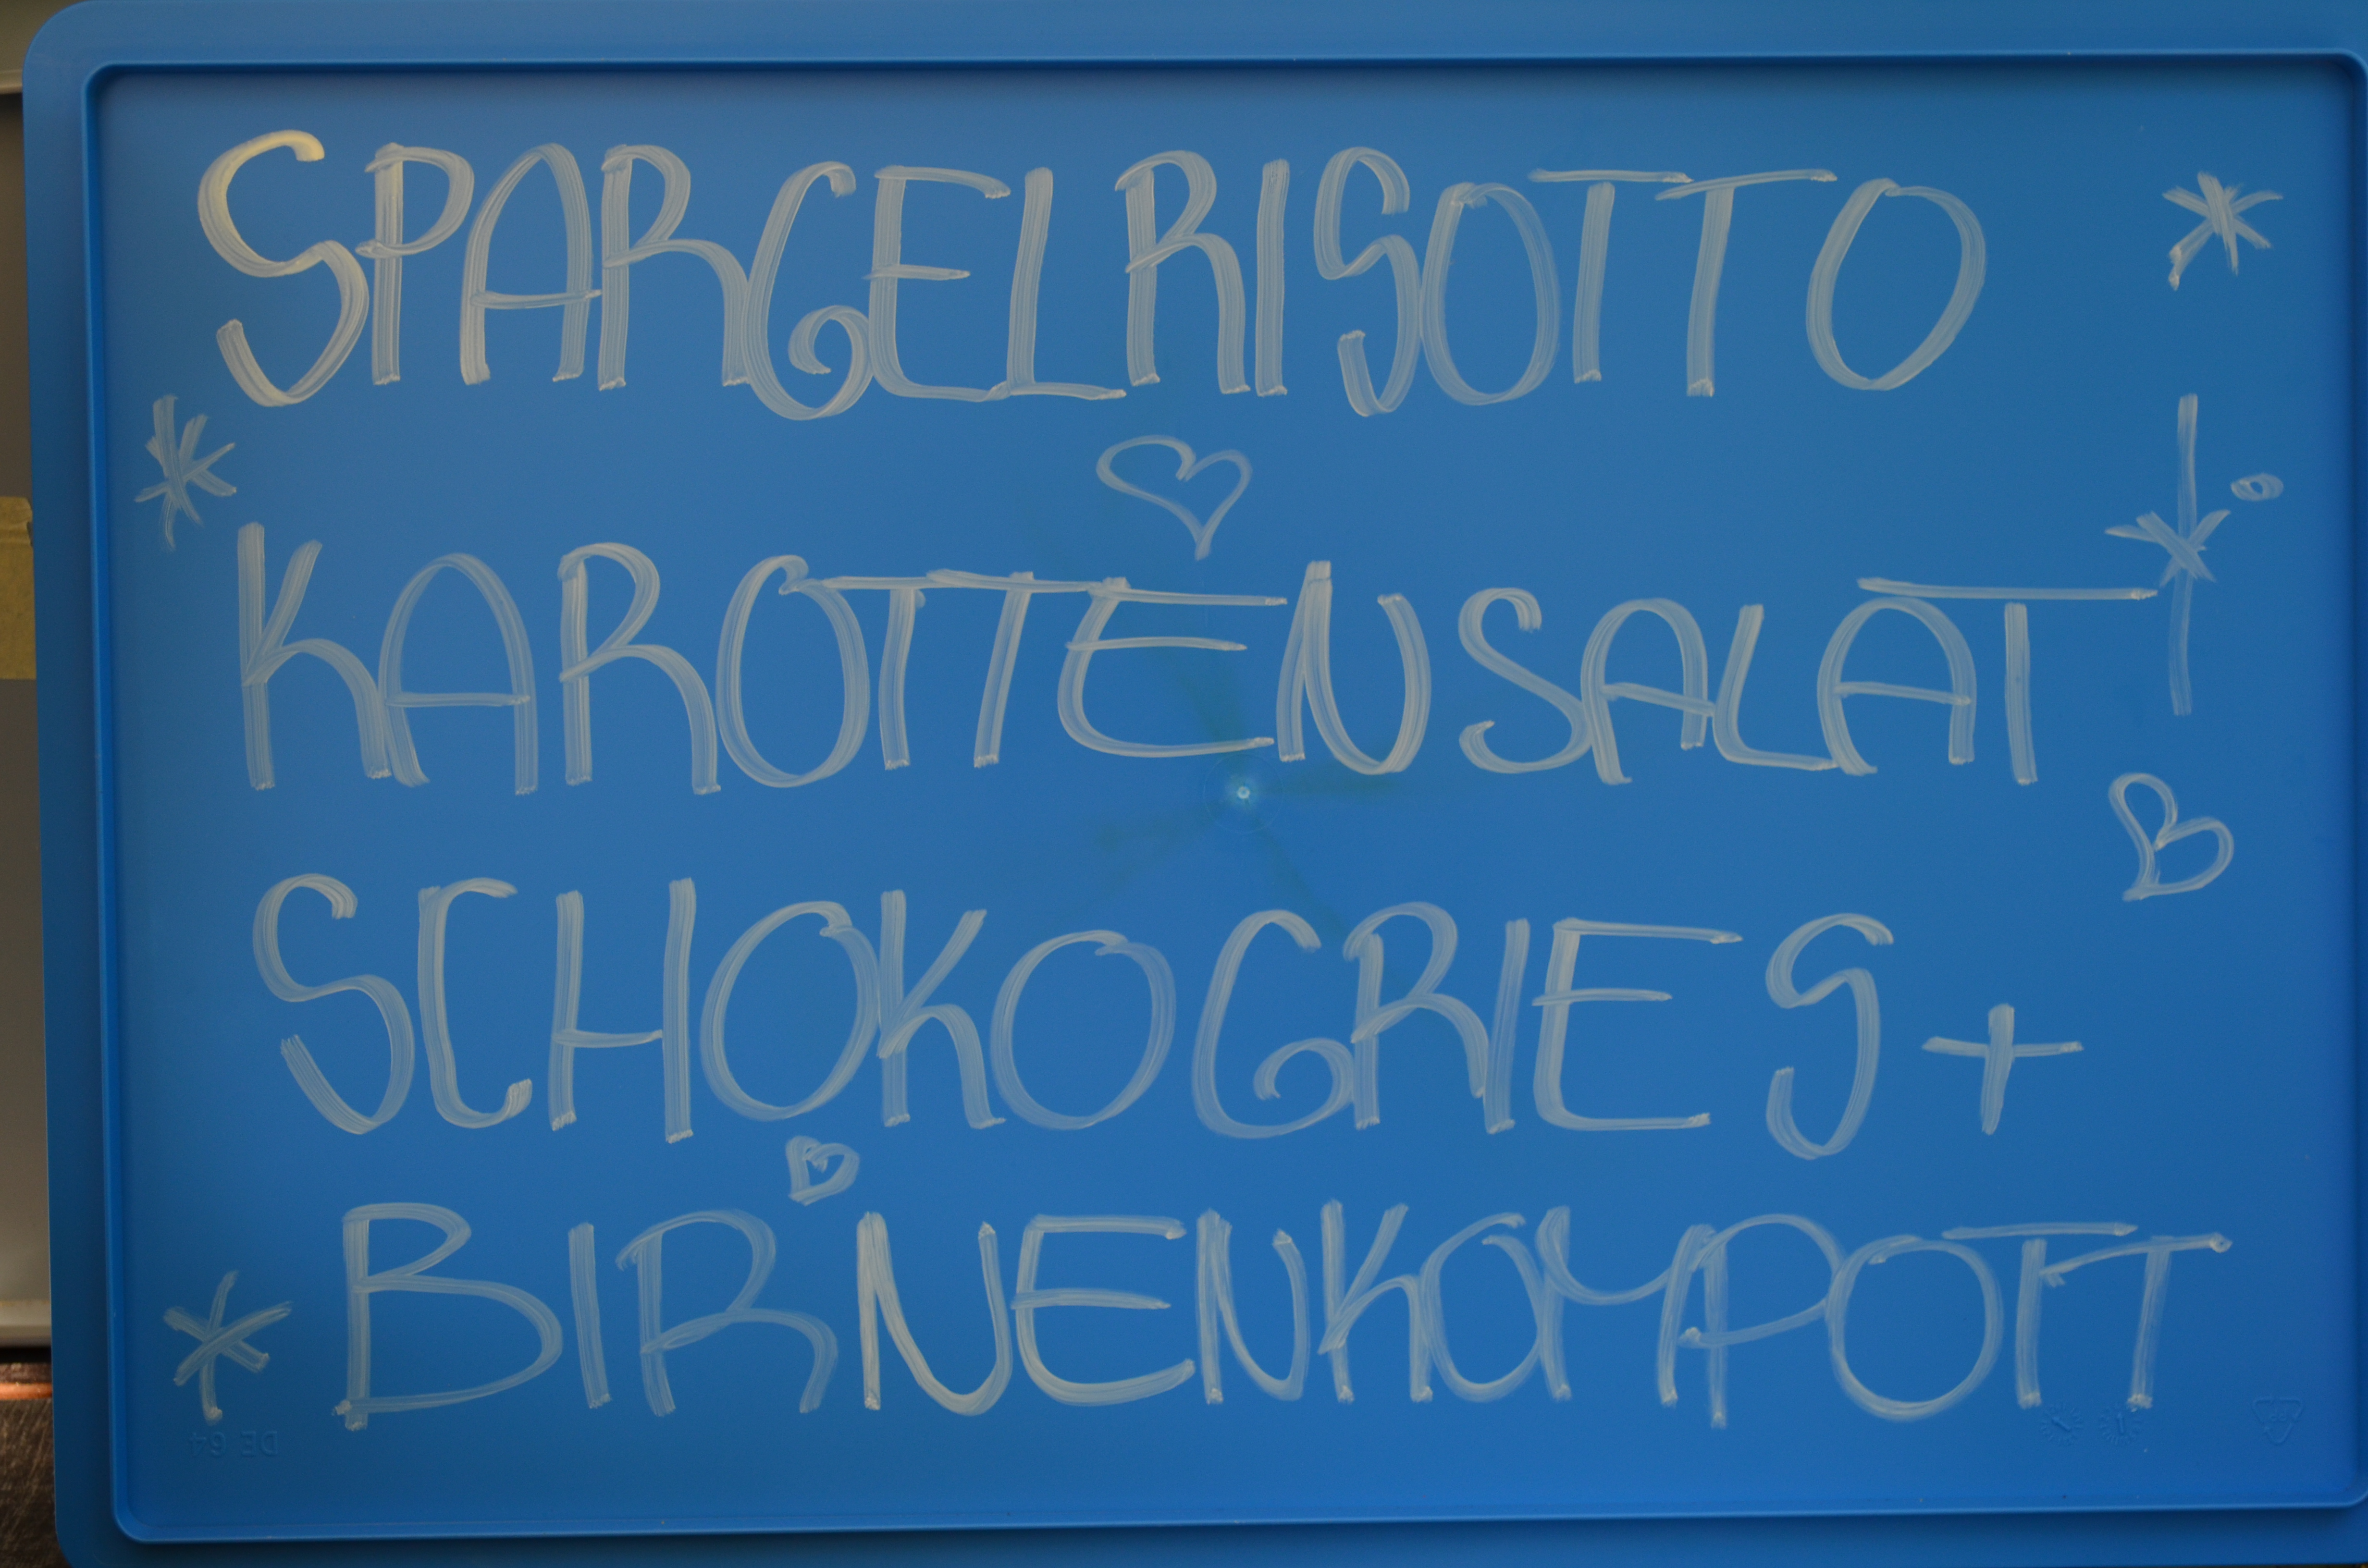 SPARGELRISOTTO
KAROTTENSALAT
SCHOKOGRIES +
BIRNENKOMPOTT
DE 64